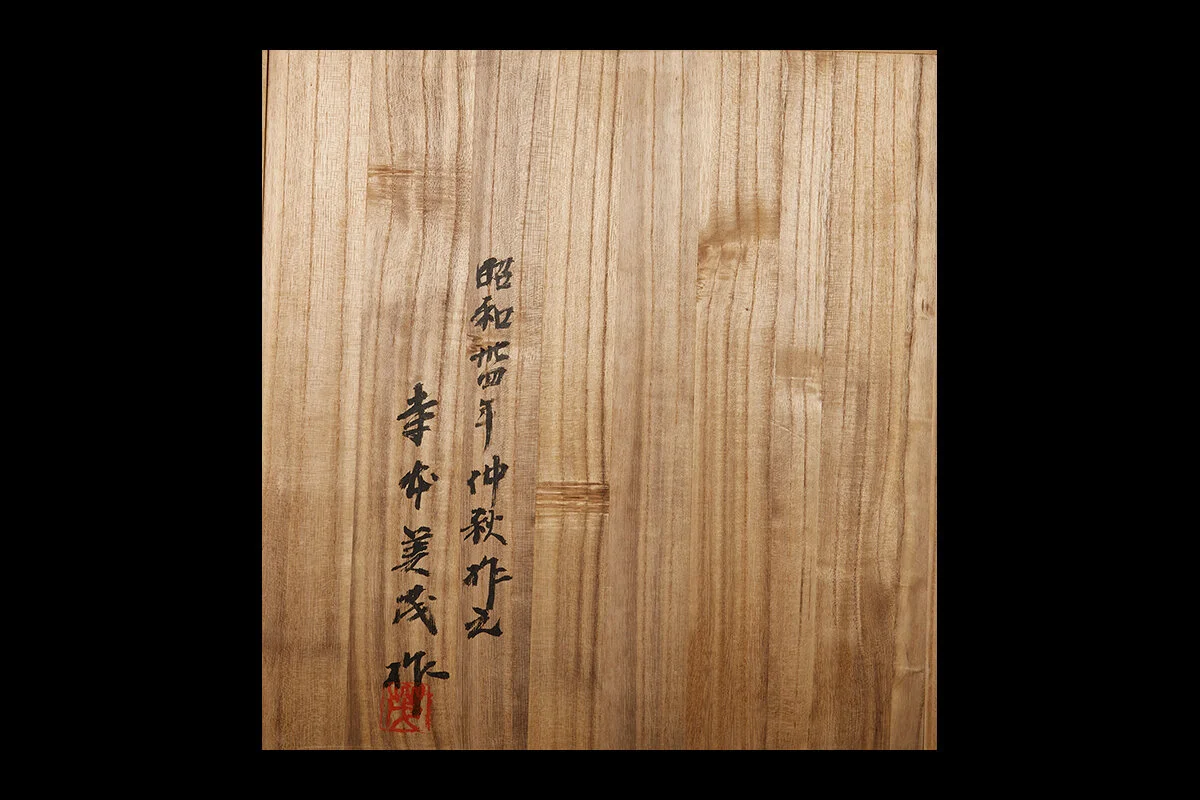 昭和卅四年仲秋作之
寺本美茂作